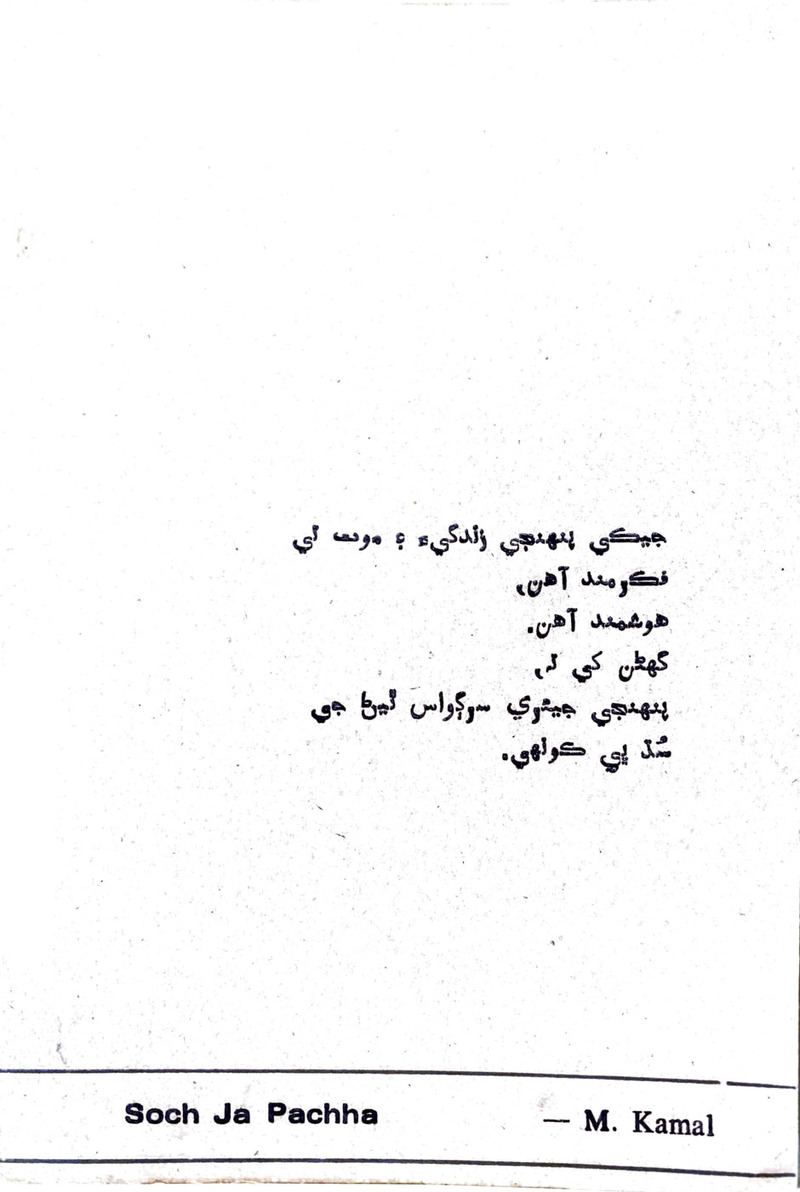 جيڪي پنهنجي زندگيءَ ۽ موت تي
فڪرمند آهن،
هوشمند آهن.
گهڻن کي ته،
پنهنجي جيئري سرڳواس ٿيڻ جي
سُڌ ئي ڪونهي.
Soch Ja Pachha — M. Kamal